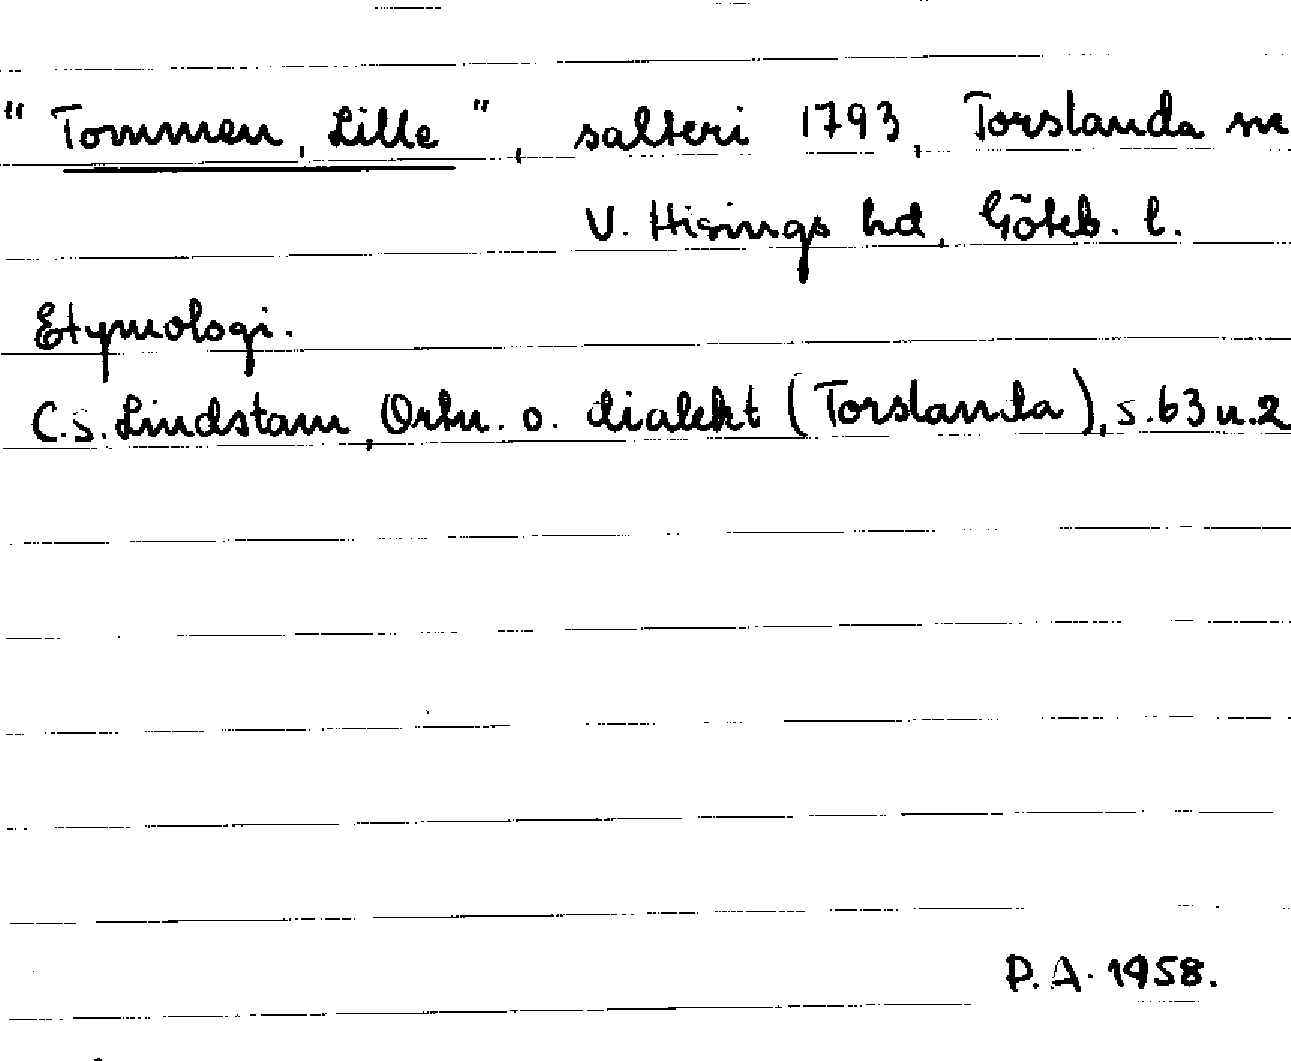 "Tommen, Lille", salteri 1793, Torslanda sn
V. Hisings hd, Göteb. l.
Etymologi.
C.S. Lindstam, Ortn. o. dialekt (Torslanda), s. 63 n.2
P.A. 1958.